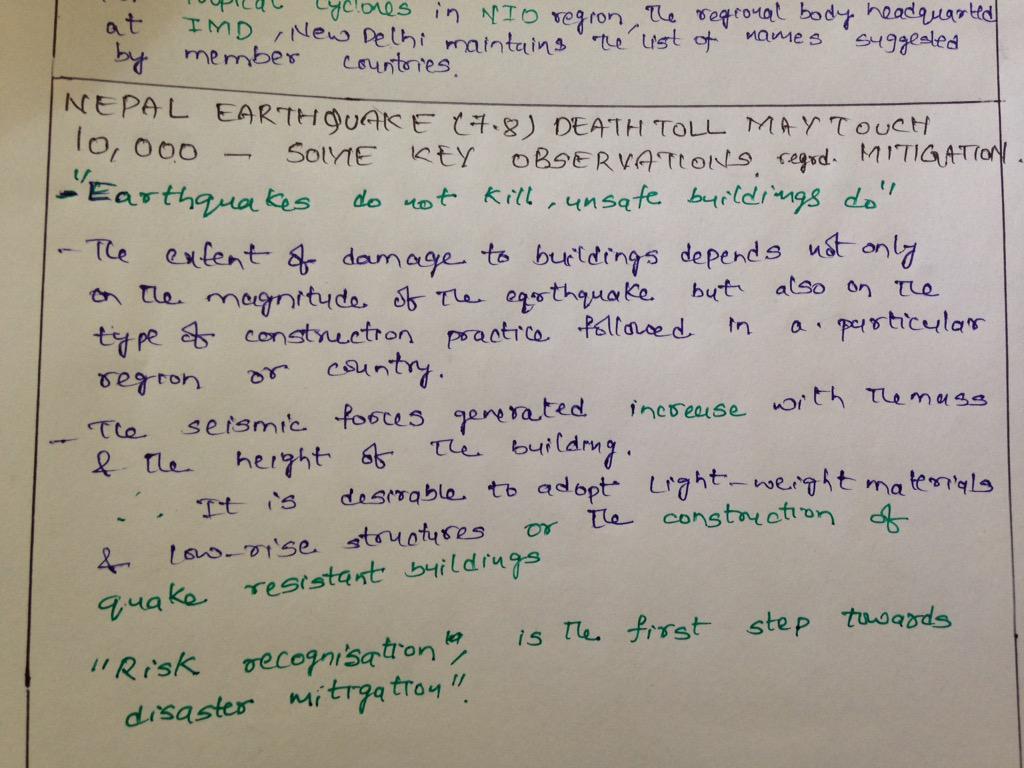 Tropical cyclones in NIO region, The regional body headquarted
at IMD, New Delhi maintains the list of names suggested
by member countries.
NEPAL EARTHQUAKE (7.8) DEATH TOLL MAY TOUCH
10,000 — SOME KEY OBSERVATIONS regrd. MITIGATION.
- "Earthquakes do not kill, unsafe buildings do"
- The extent of damage to buildings depends not only
on the magnitude of the earthquake but also on the
type of construction practice followed in a particular
region or country.
- The seismic forces generated increase with the mass
& the height of the building.
∴ It is desirable to adopt Light-weight materials
& low-rise structures or the construction of
quake resistant buildings
"Risk recognisation", is the first step towards
disaster mitigation".